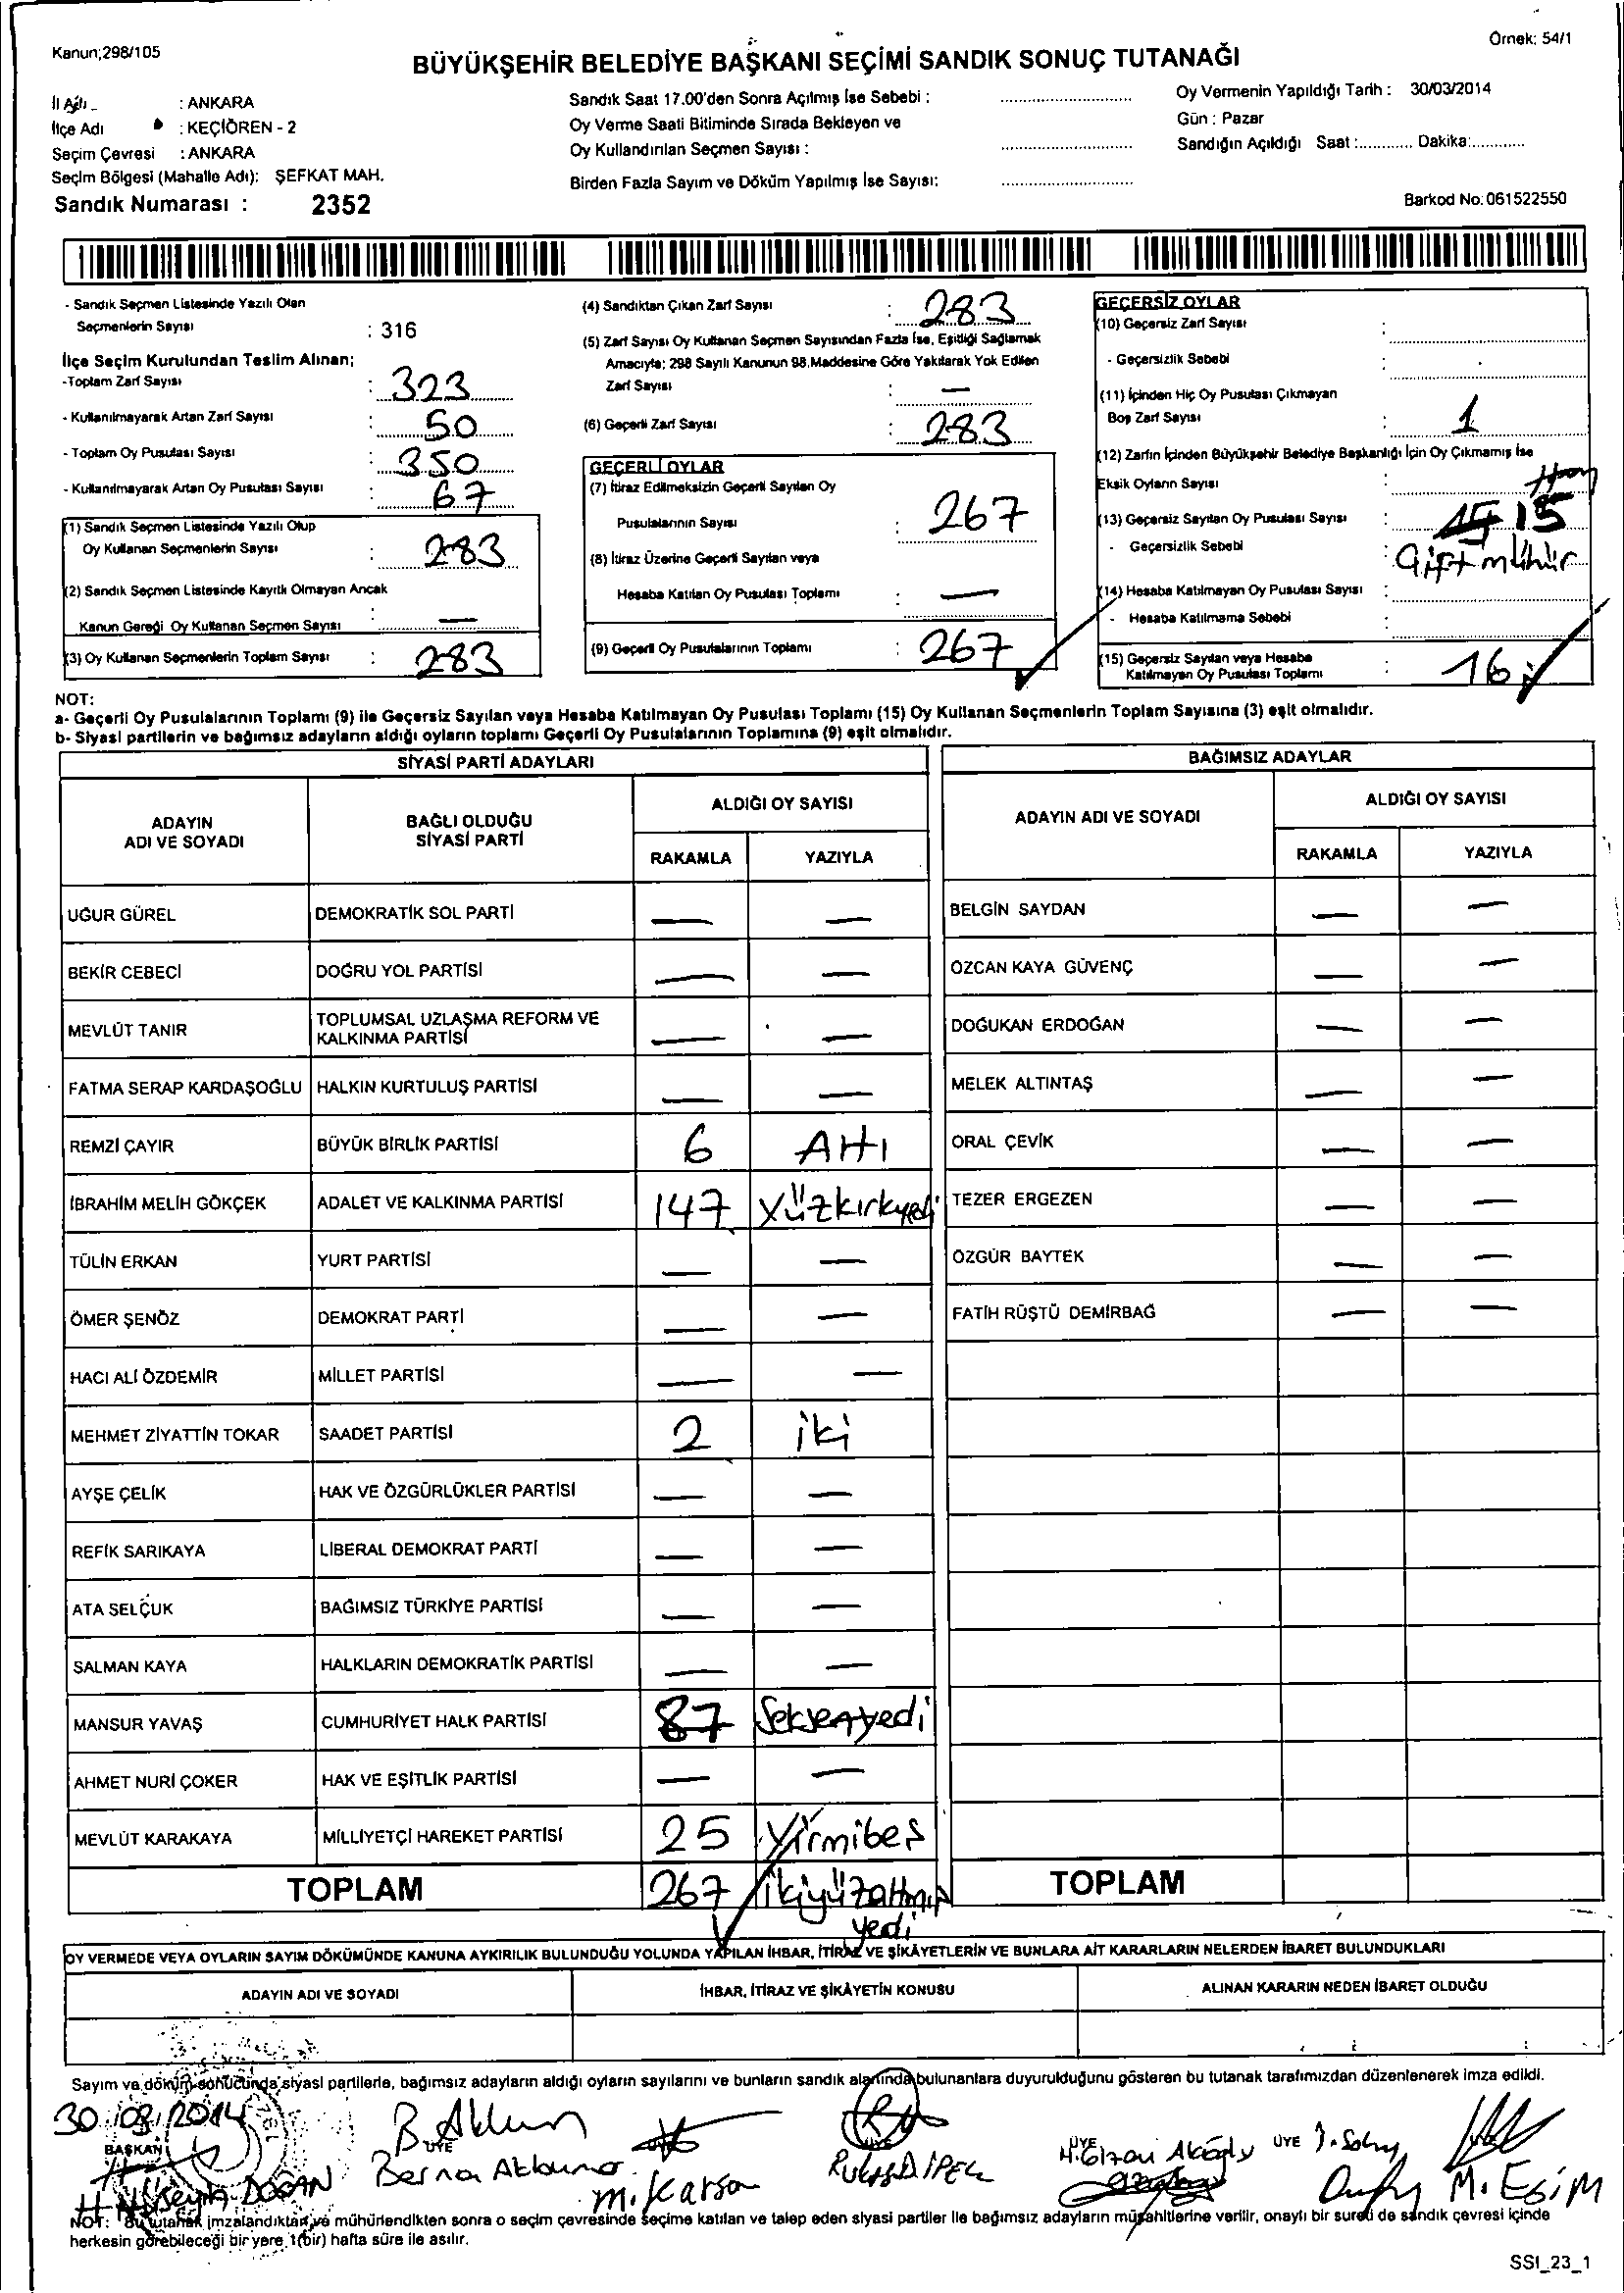 Kanun;298/105
Örnek: 54/1
BÜYÜKŞEHİR BELEDİYE BAŞKANI SEÇİMİ SANDIK SONUÇ TUTANAĞI
İl Adı : ANKARA
İlçe Adı : KEÇİÖREN - 2
Seçim Çevresi : ANKARA
Seçim Bölgesi (Mahalle Adı): ŞEFKAT MAH.
Sandık Numarası : 2352
Sandık Saat 17.00'den Sonra Açılmış İse Sebebi :
Oy Verme Saati Bitiminde Sırada Bekleyen ve
Oy Kullandırılan Seçmen Sayısı :
Birden Fazla Sayım ve Döküm Yapılmış İse Sayısı:
Oy Vermenin Yapıldığı Tarih : 30/03/2014
Gün : Pazar
Sandığın Açıldığı Saat :............ Dakika:............
Barkod No: 061522550
- Sandık Seçmen Listesinde Yazılı Olan
Seçmenlerin Sayısı : 316
İlçe Seçim Kurulundan Teslim Alınan;
-Toplam Zarf Sayısı : 323
- Kullanılmayarak Artan Zarf Sayısı : 50
- Toplam Oy Pusulası Sayısı : 350
- Kullanılmayarak Artan Oy Pusulası Sayısı : 67
(1) Sandık Seçmen Listesinde Yazılı Olup
Oy Kullanan Seçmenlerin Sayısı : 283
(2) Sandık Seçmen Listesinde Kayıtlı Olmayan Ancak
Kanun Gereği Oy Kullanan Seçmen Sayısı : —
(3) Oy Kullanan Seçmenlerin Toplam Sayısı : 283
(4) Sandıktan Çıkan Zarf Sayısı : 283
(5) Zarf Sayısı Oy Kullanan Seçmen Sayısından Fazla İse, Eşitliği Sağlamak
Amacıyla; 298 Sayılı Kanunun 98.Maddesine Göre Yakılarak Yok Edilen
Zarf Sayısı : —
(6) Geçerli Zarf Sayısı : 283
GEÇERLİ OYLAR
(7) İtiraz Edilmeksizin Geçerli Sayılan Oy
Pusulalarının Sayısı : 267
(8) İtiraz Üzerine Geçerli Sayılan veya
Hesaba Katılan Oy Pusulası Toplamı : —
(9) Geçerli Oy Pusulalarının Toplamı : 267
GEÇERSİZ OYLAR
(10) Geçersiz Zarf Sayısı :
- Geçersizlik Sebebi :
(11) İçinden Hiç Oy Pusulası Çıkmayan
Boş Zarf Sayısı : 1
(12) Zarfın İçinden Büyükşehir Belediye Başkanlığı İçin Oy Çıkmamış İse
Eksik Oyların Sayısı :
(13) Geçersiz Sayılan Oy Pusulası Sayısı : 15
- Geçersizlik Sebebi : Çift mühür
(14) Hesaba Katılmayan Oy Pusulası Sayısı :
- Hesaba Katılmama Sebebi :
(15) Geçersiz Sayılan veya Hesaba
Katılmayan Oy Pusulası Toplamı : 16
NOT:
a- Geçerli Oy Pusulalarının Toplamı (9) ile Geçersiz Sayılan veya Hesaba Katılmayan Oy Pusulası Toplamı (15) Oy Kullanan Seçmenlerin Toplam Sayısına (3) eşit olmalıdır.
b- Siyasi partilerin ve bağımsız adayların aldığı oyların toplamı Geçerli Oy Pusulalarının Toplamına (9) eşit olmalıdır.
SİYASİ PARTİ ADAYLARI
ADAYIN ADI VE SOYADI
BAĞLI OLDUĞU SİYASİ PARTİ
ALDIĞI OY SAYISI
RAKAMLA YAZIYLA
UĞUR GÜREL DEMOKRATİK SOL PARTİ — —
BEKİR CEBECİ DOĞRU YOL PARTİSİ — —
MEVLÜT TANIR TOPLUMSAL UZLAŞMA REFORM VE KALKINMA PARTİSİ — —
FATMA SERAP KARDAŞOĞLU HALKIN KURTULUŞ PARTİSİ — —
REMZİ ÇAYIR BÜYÜK BİRLİK PARTİSİ 6 Altı
İBRAHİM MELİH GÖKÇEK ADALET VE KALKINMA PARTİSİ 147 Yüzkırkyedi
TÜLİN ERKAN YURT PARTİSİ — —
ÖMER ŞENÖZ DEMOKRAT PARTİ — —
HACI ALİ ÖZDEMİR MİLLET PARTİSİ — —
MEHMET ZİYATTİN TOKAR SAADET PARTİSİ 2 iki
AYŞE ÇELİK HAK VE ÖZGÜRLÜKLER PARTİSİ — —
REFİK SARIKAYA LİBERAL DEMOKRAT PARTİ — —
ATA SELÇUK BAĞIMSIZ TÜRKİYE PARTİSİ — —
SALMAN KAYA HALKLARIN DEMOKRATİK PARTİSİ — —
MANSUR YAVAŞ CUMHURİYET HALK PARTİSİ 87 Seksenyedi
AHMET NURİ ÇOKER HAK VE EŞİTLİK PARTİSİ — —
MEVLÜT KARAKAYA MİLLİYETÇİ HAREKET PARTİSİ 25 Yirmibeş
TOPLAM 267 ikiyüzaltmış yedi
BAĞIMSIZ ADAYLAR
ADAYIN ADI VE SOYADI
ALDIĞI OY SAYISI
RAKAMLA YAZIYLA
BELGİN SAYDAN — —
ÖZCAN KAYA GÜVENÇ — —
DOĞUKAN ERDOĞAN — —
MELEK ALTINTAŞ — —
ORAL ÇEVİK — —
TEZER ERGEZEN — —
ÖZGÜR BAYTEK — —
FATİH RÜŞTÜ DEMİRBAĞ — —
TOPLAM
OY VERMEDE VEYA OYLARIN SAYIM DÖKÜMÜNDE KANUNA AYKIRILIK BULUNDUĞU YOLUNDA YAPILAN İHBAR, İTİRAZ VE ŞİKÂYETLERİN VE BUNLARA AİT KARARLARIN NELERDEN İBARET BULUNDUKLARI
ADAYIN ADI VE SOYADI
İHBAR, İTİRAZ VE ŞİKÂYETİN KONUSU
ALINAN KARARIN NEDEN İBARET OLDUĞU
Sayım ve döküm sonucunda siyasi partilerle, bağımsız adayların aldığı oyların sayılarını ve bunların sandık alanında bulunanlara duyurulduğunu gösteren bu tutanak tarafımızdan düzenlenerek imza edildi.
30.03.2014
BAŞKAN
ÜYE
ÜYE
ÜYE
H. Hüseyin DOĞAN
M. Karsa
M. ESİM
NOT: Bu tutanak imzalandıktan ve mühürlendikten sonra o seçim çevresinde seçime katılan ve talep eden siyasi partiler ile bağımsız adayların müşahitlerine verilir, onaylı bir sureti de sandık çevresi içinde
herkesin görebileceği bir yere 1(bir) hafta süre ile asılır.
SSI_23_1